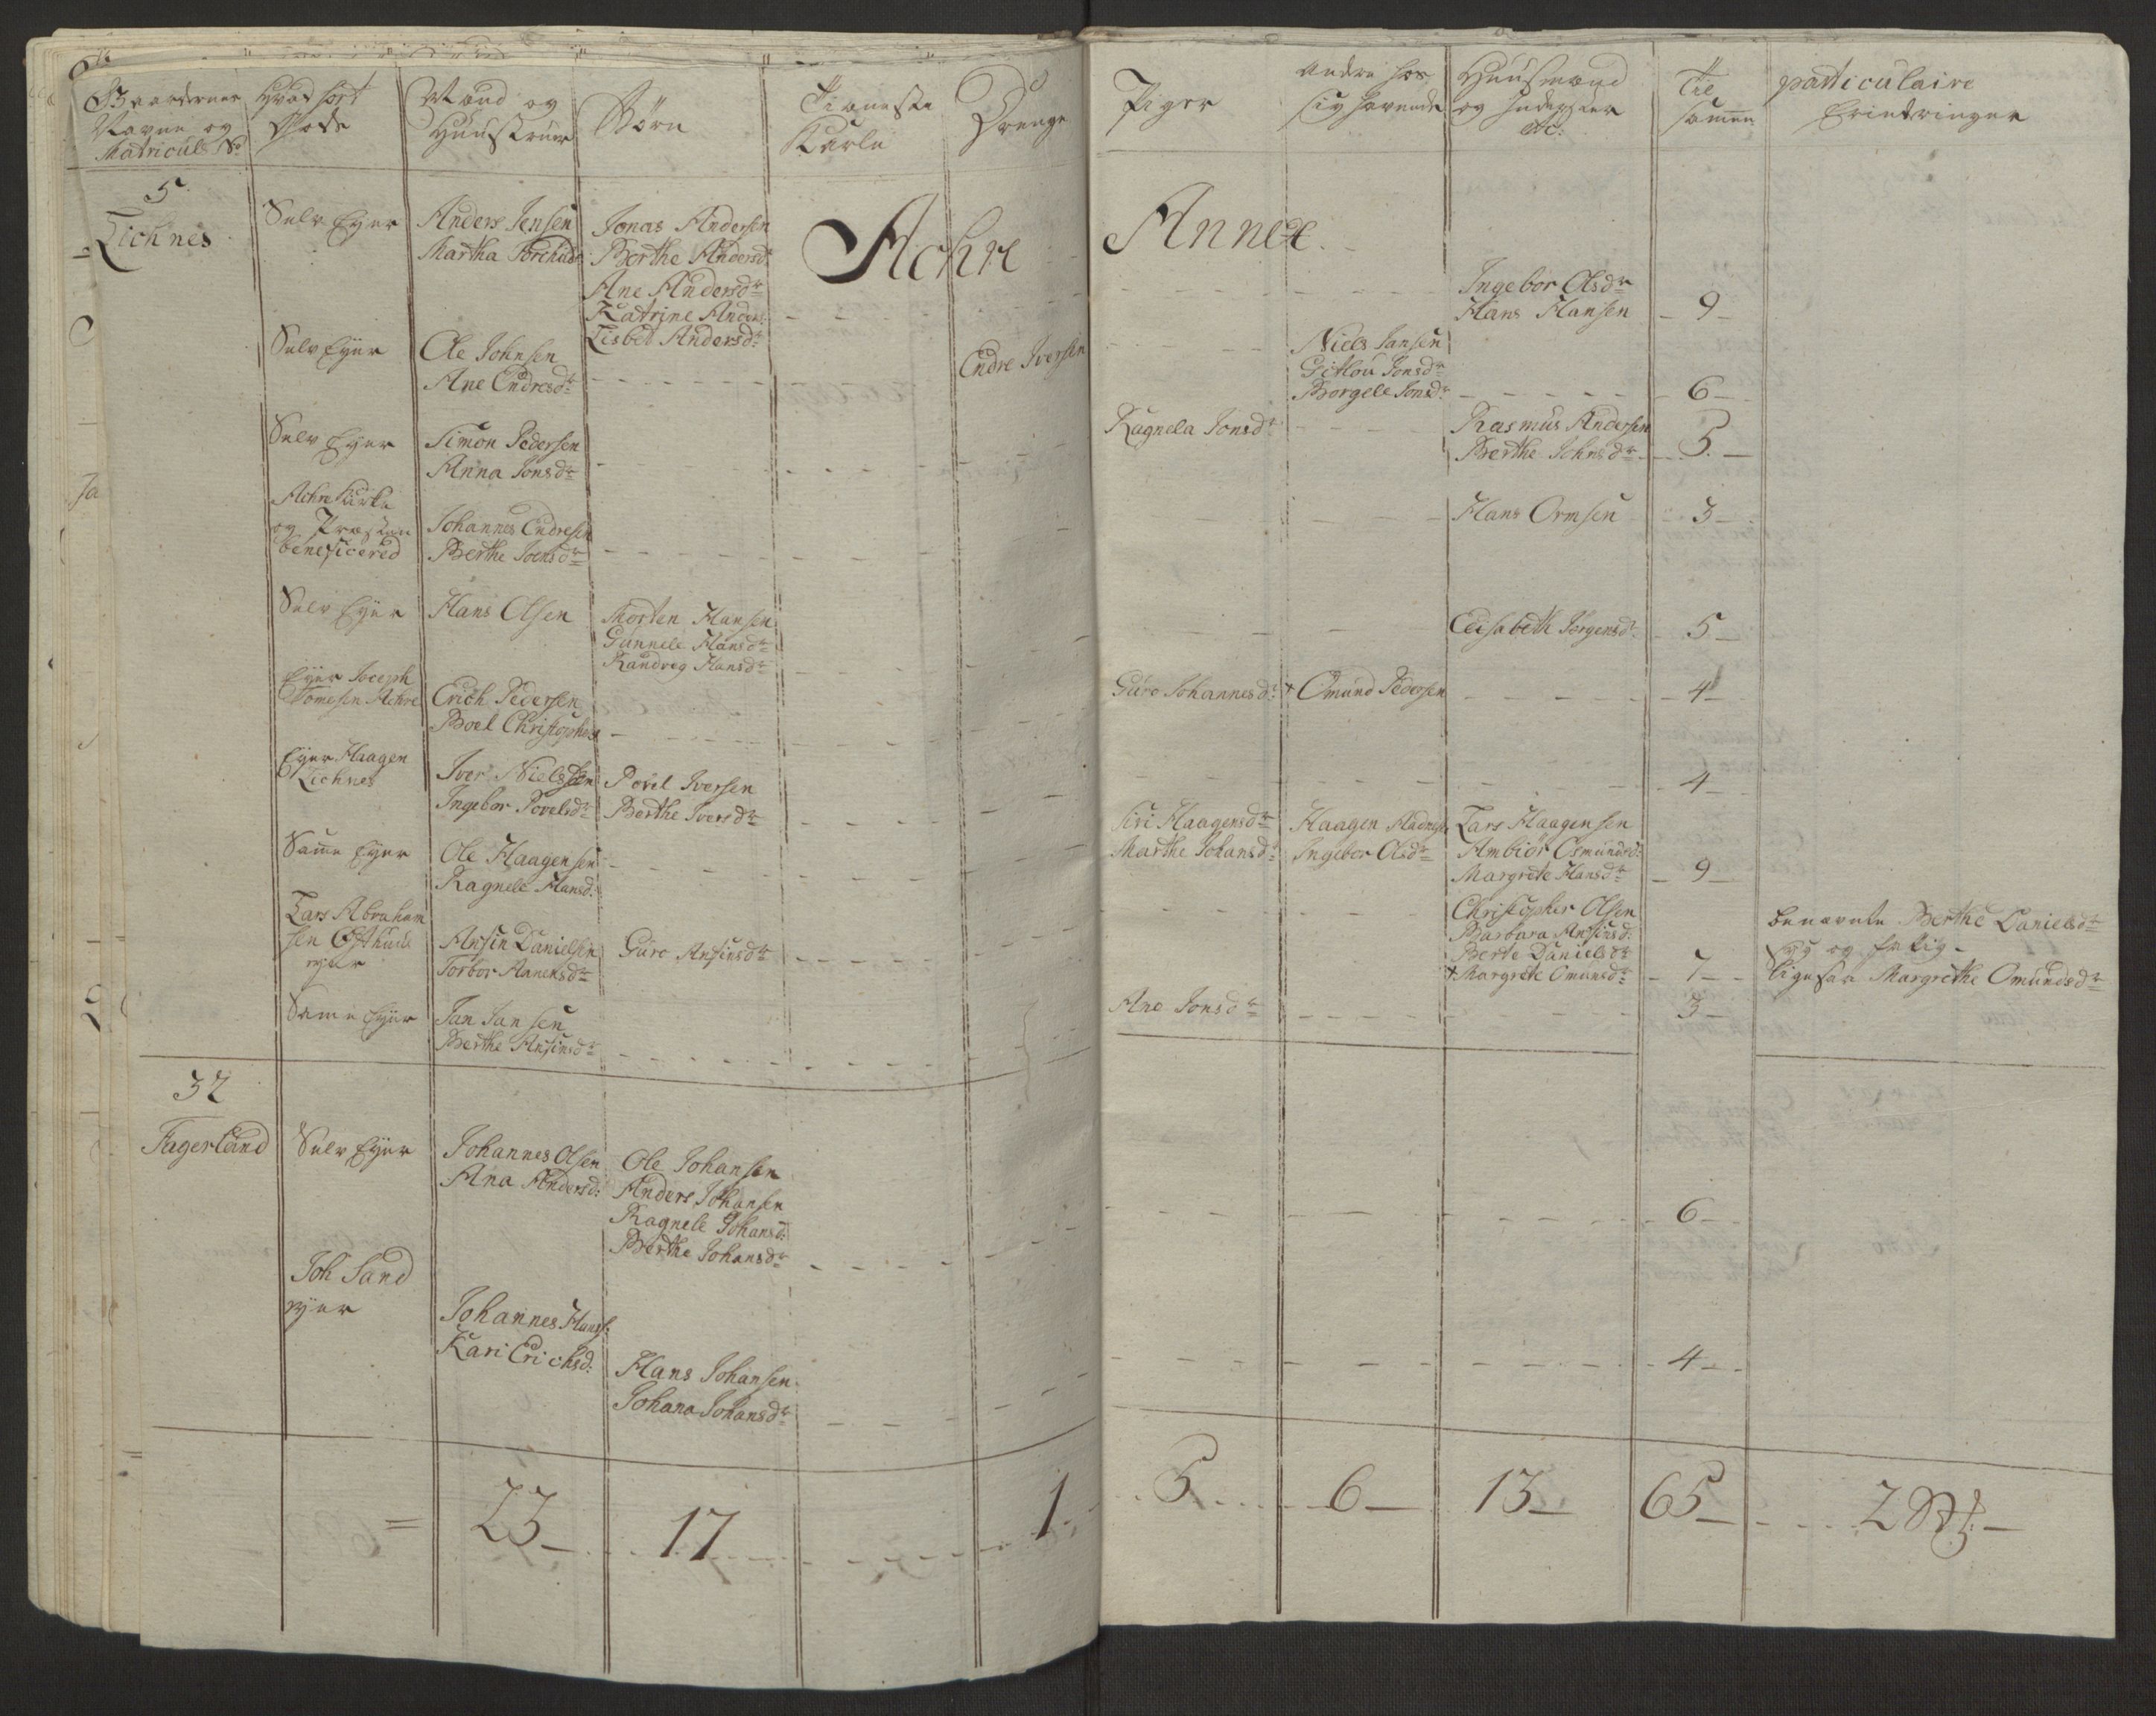 Gaardernes Navne og Matricul No
Hvad sort Gods
Mænd og Hustruer
Børn
Tieneste Karle
Drenge
Piger
Andre hos sig havende
Huusmænd og Inderster etc:
Til sammen
particulaire Erindringer
Achre Annex
5
Lichnes
Selv Eyer
Anders Jensen
Martha
Jonas Andersen
Berthe Andersdr
Ane Andersdr
Katrine Anders:
Lisbet Andersdr
Ingebor Olsdr
Hans Hansen
9
Selv Eyer
Ole Johnsen
Ane Endresdr
Endre Iversen
Niels Jansen
Gitlou Jonsdr
Borgele Jonsdr
6
Selv Eyer
Simon Pedersen
Anna Jonsdr
Ragnela Jonsdr
Rasmus Andersen
Berthe Johnsdr
5
Achre Kirke
og Præsten
beneficered
Johannes Endresen
Berthe Joensdr
Hans Ormsen
3
Selv Eyer
Hans Olsen
Morten Hansen
Gunnele Hansdr
Randveg Hansdr
Elisabeth Jörgensdr
5
Eyer Joceph
Tomesen Achre
Erich Pedersen
Boel Christophersd
Guro Johannesdr
+ Omund Pedersen
4
Eyer Haagen
Lichnes
Iver Nielssen
Ingebor Povelsdr
Povel Iversen
Berthe Iversdr
4
Samme Eyer
Ole Haagensen
Ragnele Hansd:
Siri Haagensdr
Marthe Johansdr
Haagen
Ingebor Olsdr
Lars Haagensen
Ambiör Osmundsd:
Margrete Hansdr
9
Lars Abraham
sen Østhuus
eyer
Ansin Danielsen
Torbor Aanensdr
Guro Ansinsdr
Christopher Olsen
Barbara Ansinsd:
Berte Danielsdr
+ Margrete Omunsdr
7
benævnte Berthe Danielsdr
syg og fattig
ligesaa Margrethe Omundsdr
Same Eyer
Jan Jansen
Berthe Ansinsdr
Ane Jonsdr
3
32
Fagerland
Selv Eyer
Johannes Olsen
Ana Andersd:
Ole Johansen
Anders Johansen
Ragnele Johansd:
Berthe Johansdr
6
Joh Sand
eyer
Johannes Hans:
Kari Erichsd:
Hans Johansen
Johana Johansdr
4
= 23 17 1 5 6 13 65 2